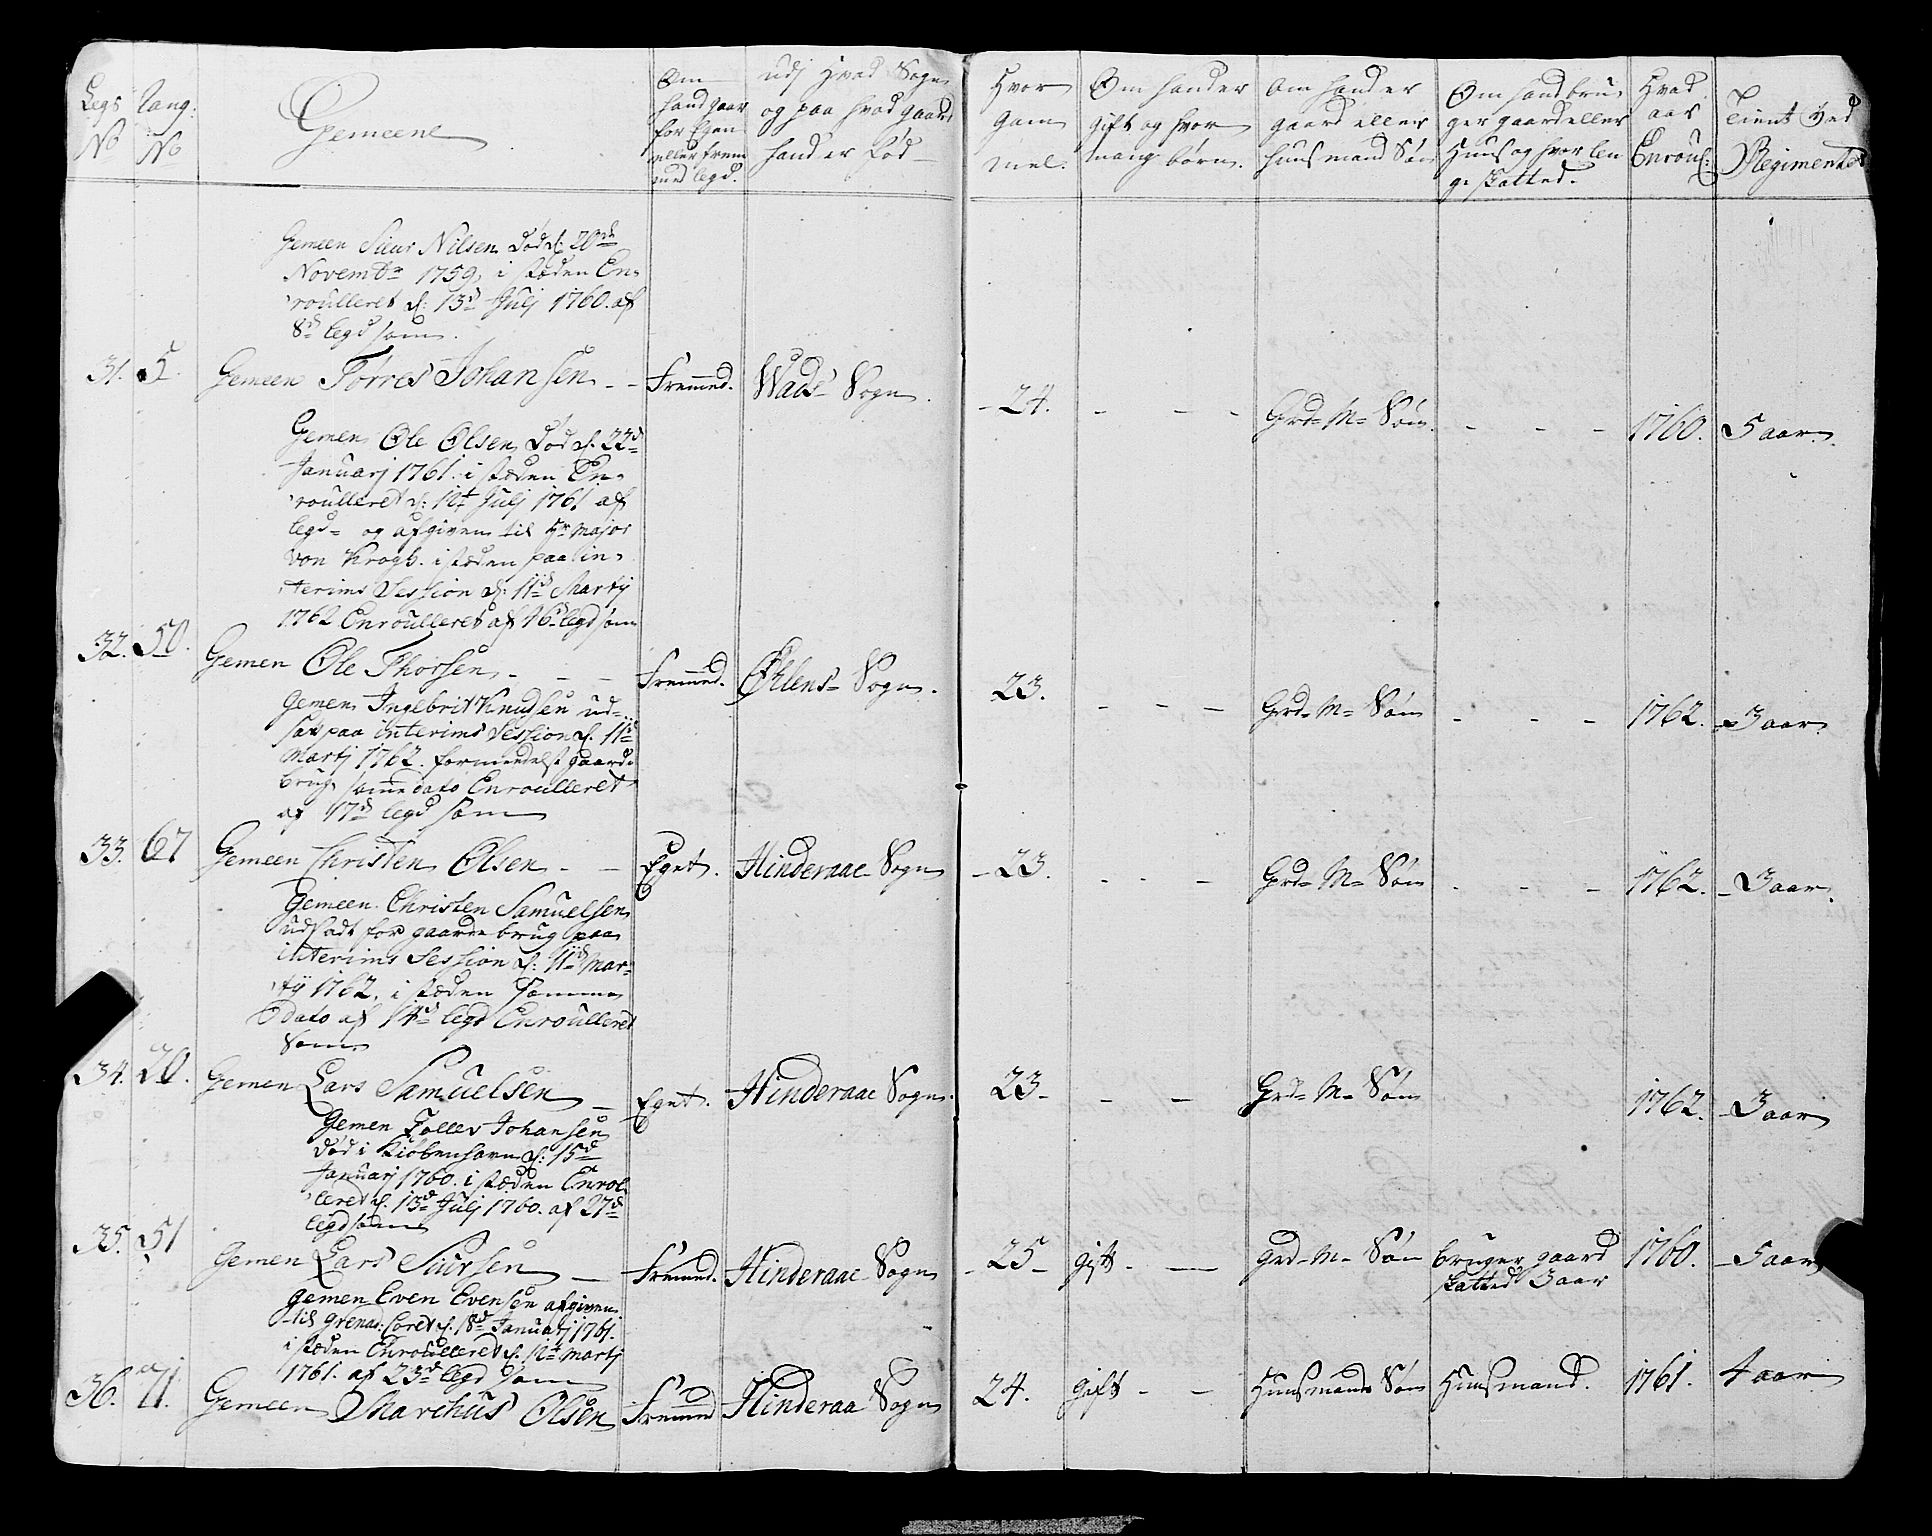 Legs No
Rang: No
Gemeene
Om hand gaar for Egen eller frem med legd.
udj Hvad Sogn og paa hvad gaard hand er Fød
Hvor Gam mel.
Om hand er gift og hvor mang børn.
Om hand er gaard eller Huusmand Søn
Om hand bru ger gaard eller Huus og hvor len ge skatted.
Hvad aar Enroul:
Tient ved Regimentet
Gemeen Siur Nilsen Død d: 20de
Novembr 1759, i stæden En-
roulleret d: 13de Julj 1760. af
8de legd som.
31. 5. Gemeen Tørres Johansen - - Fremmed. Wads Sogn. - 24. - - - Grd= M= Søn. - - - 1760. 5 aar.
Gemen Ole Olsen Død d. 22de
Januarj 1761. i stæden En-
roulleret d: 12te Julj 1761 af
legd= og afgiven til Hr Major
von Krogh. i stæden paa in-
terims Session d: 11de Martij
1762 Enroulleret af 16de legd som
32. 50. Gemen Ole Thorsen - - - Fremmed. Ølens= Sogn. 23. - - - Grd= M= Søn - - - 1762. - 3 aar.
Gemen Ingebrit Knudsen ud-
sat paa interims Session d. 11de
Martj 1762. formedelst gaards
brug, samme dato Enroulleret
af 17de legd som
33. 67 Gemeen Christen Olsen - - Eget. Hinderaae Sogn - 23. - - - Grd= M= Søn - - - 1762. - 3 aar.
Gemeen Christen Samuelsen
udsadt for gaards brug paa
interims Session d: 11de Mar-
tij 1762, i stæden samme
dato af 14de legd Enroulleret
som
34. 20. Gemen Lars Samuelsen - Eget. Hinderaae Sogn. 23 - - - Grd= M= Søn 1762. - 3 aar
Gemen Toller Johansen
død i Kiøbenhavn d: 15de
Januarj 1760. i stæden Enrol-
leret d. 13de Julj 1760. af 27de
legd som
35. 51 Gemen Lars Siursen - Fremed. Hinderaae Sogn - 25 - gift - - Grd= M= Søn bruger gaard skatted 3 aar 1760. - 5 aar
Gemen Even Evensen afgiven
til Grenad: Coret d. 18de Januarj 1761.
i stæden Enroulleret d. 12te Martj
1761. af 23de legd som
36. 71. Gemeen Marchus Olsen Fremmed Hinderaa Sogn 24. gift - - Huusmands Søn Huusmand. 1761. 4 aar